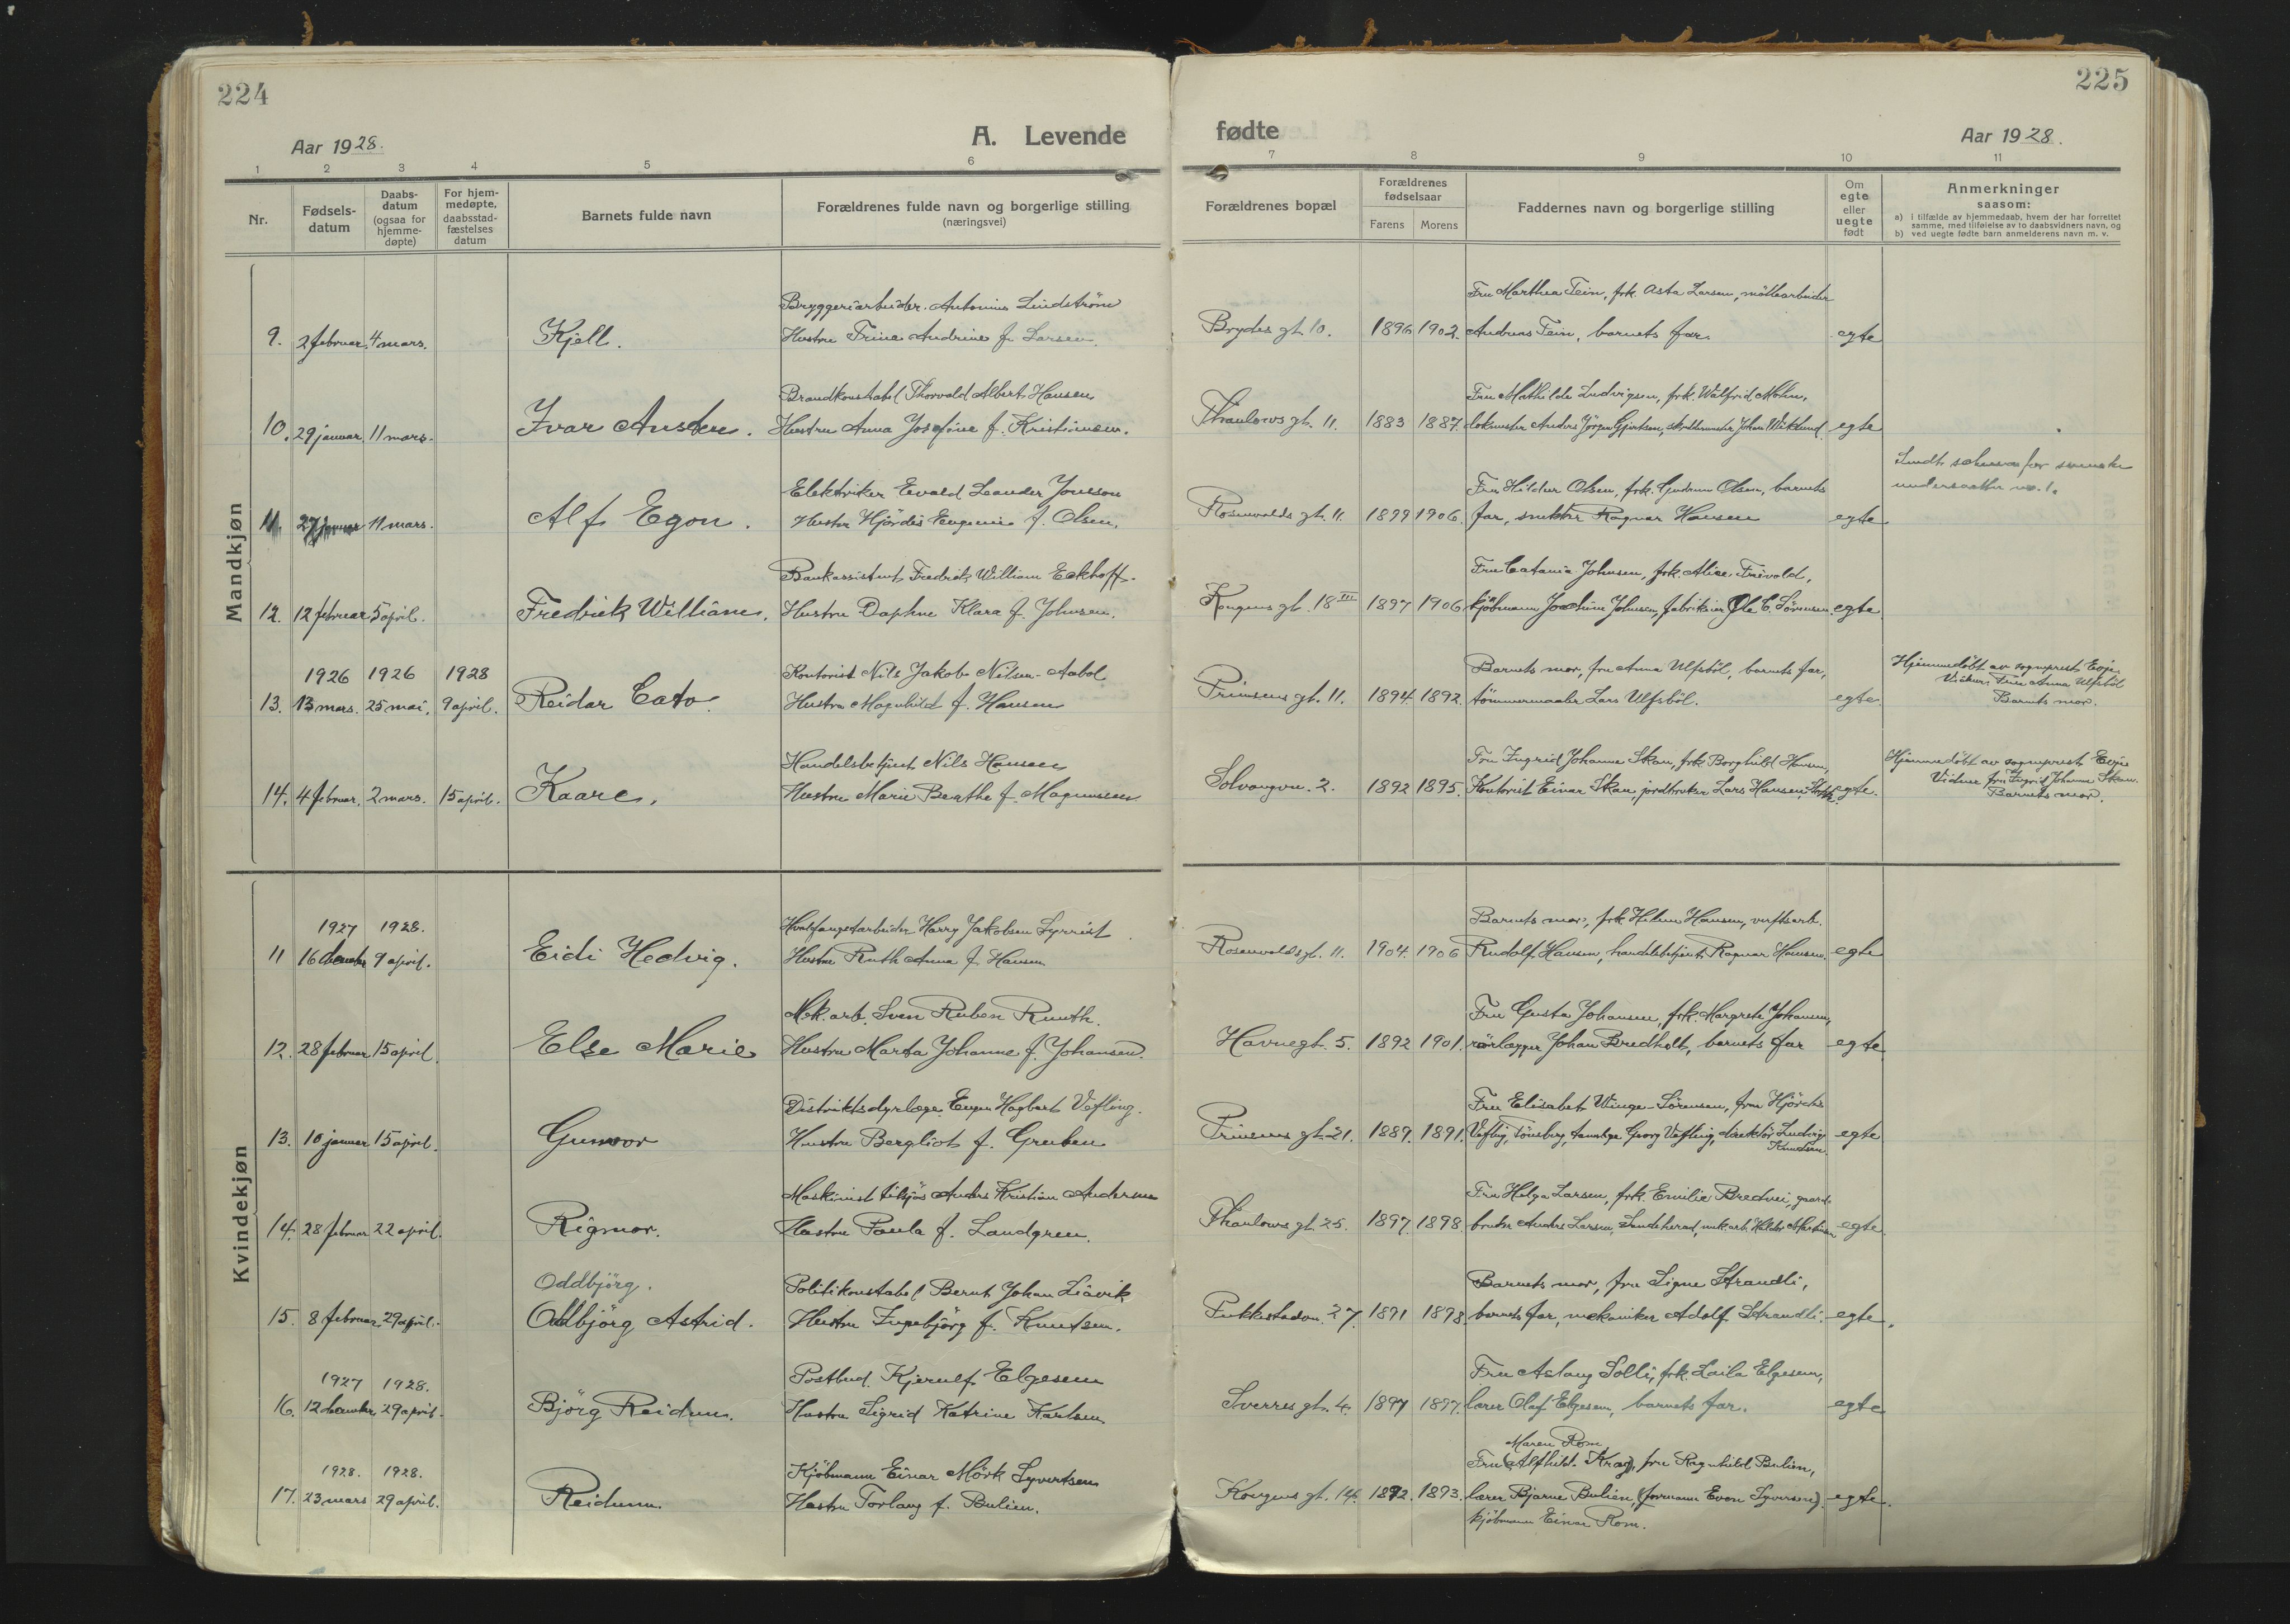 224
Aar 1928.
A. Levende
1 2 3 4 5 6
Nr.
Fødsels-
datum
Daabs-
datum
(ogsaa for
hjemme-
døpte)
For hjem-
medøpte,
daabsstad-
fæstelses
datum
Barnets fulde navn
Forældrenes fulde navn og borgerlige stilling
(næringsvei)
Mandkjøn
Bryggeriarbeider. Antonius Lindström
9. 2 februar 4 mars. Kjell. Hustru Trine Andrine f. Larsen.
Brandkonstabel Thorvald Albert Hansen
10. 29 januar 11 mars. Ivar Austen. Hustru Anna Josefine f. Kristiansen.
Elektriker Evald Leander Jonsson
11. 27 januar 11 mars. Alf Egon. Hustru Hjördis Eugenie f. Olsen.
Bankassistent Fredrik William Eckhoff.
12. 12 februar 5 april. Fredrick William. Hustru Daphne Klara f. Johnsen.
1926 1926 1928 Kontorist Nils Jakob Nilsen-Aabol
13. 13 mars. 25 mai. 9 april. Reidar Cato. Hustru Magnhild f. Hansen
Handelsbetjent Nils Hansen
14. 4 februar. 2 mars. 15 april. Kaare. Hustru Marie Beathe f. Magnussen
Kvindekjøn
1927 1928. Hvalfangstarbeider Harry Jakobsen
11 16 december 9 april. Eidi Hedvig. Hustru Ruth Anna f. Hansen
Mek. arb. Sven Ruben Ruuth.
12. 28 februar 15 april. Else Marie Hustru Marta Johanne f. Johansen.
Distriktsdyrlæge Eugen Hagbart Vefling.
13. 10 januar 15 april. Gunvor Hustru Bergliot f. Gruben
Maskinist tilsjös Anders Kristian Andersen
14. 28 februar 22 april. Rigmor. Hustru Paula f. Landgren.
Oddbjörg. Politikonstabel Bernt Johan Liavik
15. 8 februar. 29 april. Oddbjörg Astrid. Hustru Ingebjörg f. Knutsen.
1927 1928. Postbud. Kjerulf Elgesem
16. 12 december 29 april. Björg Reidun. Hustru Sigrid Katrine Karlsen
1928. 1928. Kjöbmann Einar Mörk Syvertsen
17. 23 mars 29 april. Reidunn. Hustru Torlaug f. Bulien.
225
fødte
Aar 1928.
7 8 9 10 11
Forældrenes bopæl
Forældrenes
fødselsaar
Farens Morens
Faddernes navn og borgerlige stilling
Om
egte
eller
uegte
født
Anmerkninger
saasom:
a) i tilfælde av hjemmedaab, hvem der har forrettet
samme, med tilføielse av to daabsvidners navn, og
b) ved uegte fødte barn anmelderens navn m. v.
Fru Marthea Tein, frk. Asta Larsen, möllearbeider
Brydes gt. 10. 1896 1902. Andreas Tein, barnets far. egte
Fru Mathilde Ludvigsen, frk. Walfrid Mohn,
Thaulows gt. 11. 1883 1887. Anders Jörgen Gjertsen, Johan Wiklund. egte
Sendt schema for svenske
undersaatter no. 1.
Fru Hildur Olsen, frk. Gudrun Olsen, barnets
Rosenvolds gt. 11. 1899 1906. far, Ragnar Hansen egte
Fru Catania Johnsen, frk. Alice Trevold,
Kongens gt. 18 III 1897 1906 kjöbmann Joachim Johnsen, fabrikeier Ole C. Sörensen. egte
Barnets mor, fru Anna Ulfsböl, barnets far,
Prinsens gt. 11. 1894 1892. tömmermaaler Lars Ulfsböl. egte.
Hjemmedöbt av sogneprest Evje
Vidner: Fru Anna Ulfsböl
Barnets mor.
Fru Ingrid Johanne Skau, frk. Borghild Hansen,
Solvangvn. 2. 1892 1895. Kontorist Einar Skau, jordbruker Lars Hansen, egte.
Hjemmedöbt av sogneprest Evje
Vidner fru Ingrid Johanne Skau.
Barnets mor.
Barnets mor, frk. Helene Hansen, verftsarb.
Rosenvolds gt. 11. 1904. 1906 Rudolf Hansen, handelsbetjent Ragnar Hansen. egte
Fru Gusta Johansen, frk. Margrete Johansen,
Havnegt. 5. 1892 1901. rörlægger Johan Bredholt, barnets far egte
Fru Elisabet Winge-Sörensen, fru Hjördis
Prinsens gt. 21. 1889. 1891. Vefling, Tönsberg, tannlæge Georg Vefling, direktör Ludvig egte
Knudsen.
Fru Helga Larsen, frk. Emilie Bredvei, gaard-
Thaulows gt. 25. 1897. 1898. bruker Anders Larsen, Sandeherad, mek. arb. egte.
Barnets mor, fru Signe Strandli,
Pukkestadvn. 27. 1891 1898. barnets far, mekaniker Adolf Strandli. egte.
Fru Aslaug Solli, frk. Laila Elgesem,
Sverres gt. 4. 1897 1897. lærer Olaf Elgesem, barnets far. egte
Maren Rom
Fru (Alfhild Krag), fru Ragnhild Bulien,
Kongens gt. 14. 1892. 1893. lærer Bjarne Bulien, (formann Even Syversen). egte.
kjöbmann Einar Rom.